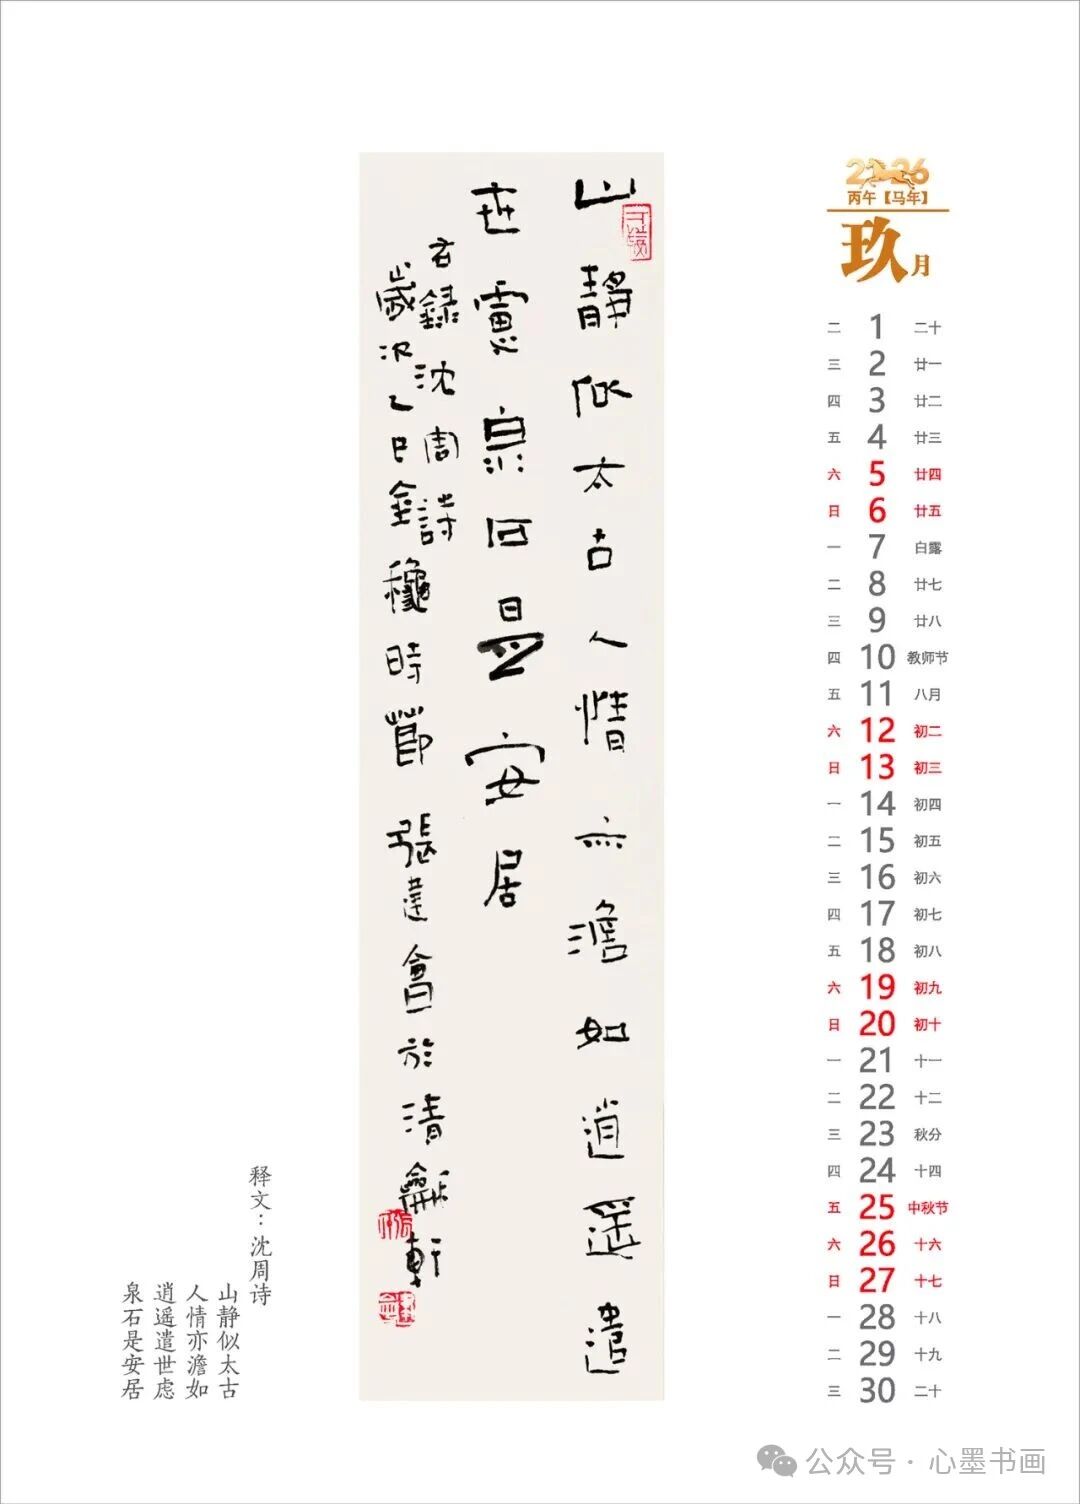 山靜似太古人情亦澹如逍遥遣
世慮泉石是安居
右録沈周詩
歲次乙巳金龝時節張達會於清龢軒
2026
丙午【马年】
玖月
二 1 二十
三 2 廿一
四 3 廿二
五 4 廿三
六 5 廿四
日 6 廿五
一 7 白露
二 8 廿七
三 9 廿八
四 10 教师节
五 11 八月
六 12 初二
日 13 初三
一 14 初四
二 15 初五
三 16 初六
四 17 初七
五 18 初八
六 19 初九
日 20 初十
一 21 十一
二 22 十二
三 23 秋分
四 24 十四
五 25 中秋节
六 26 十六
日 27 十七
一 28 十八
二 29 十九
三 30 二十
释文：沈周诗
山静似太古
人情亦澹如
逍遥遣世虑
泉石是安居
公众号·心墨书画